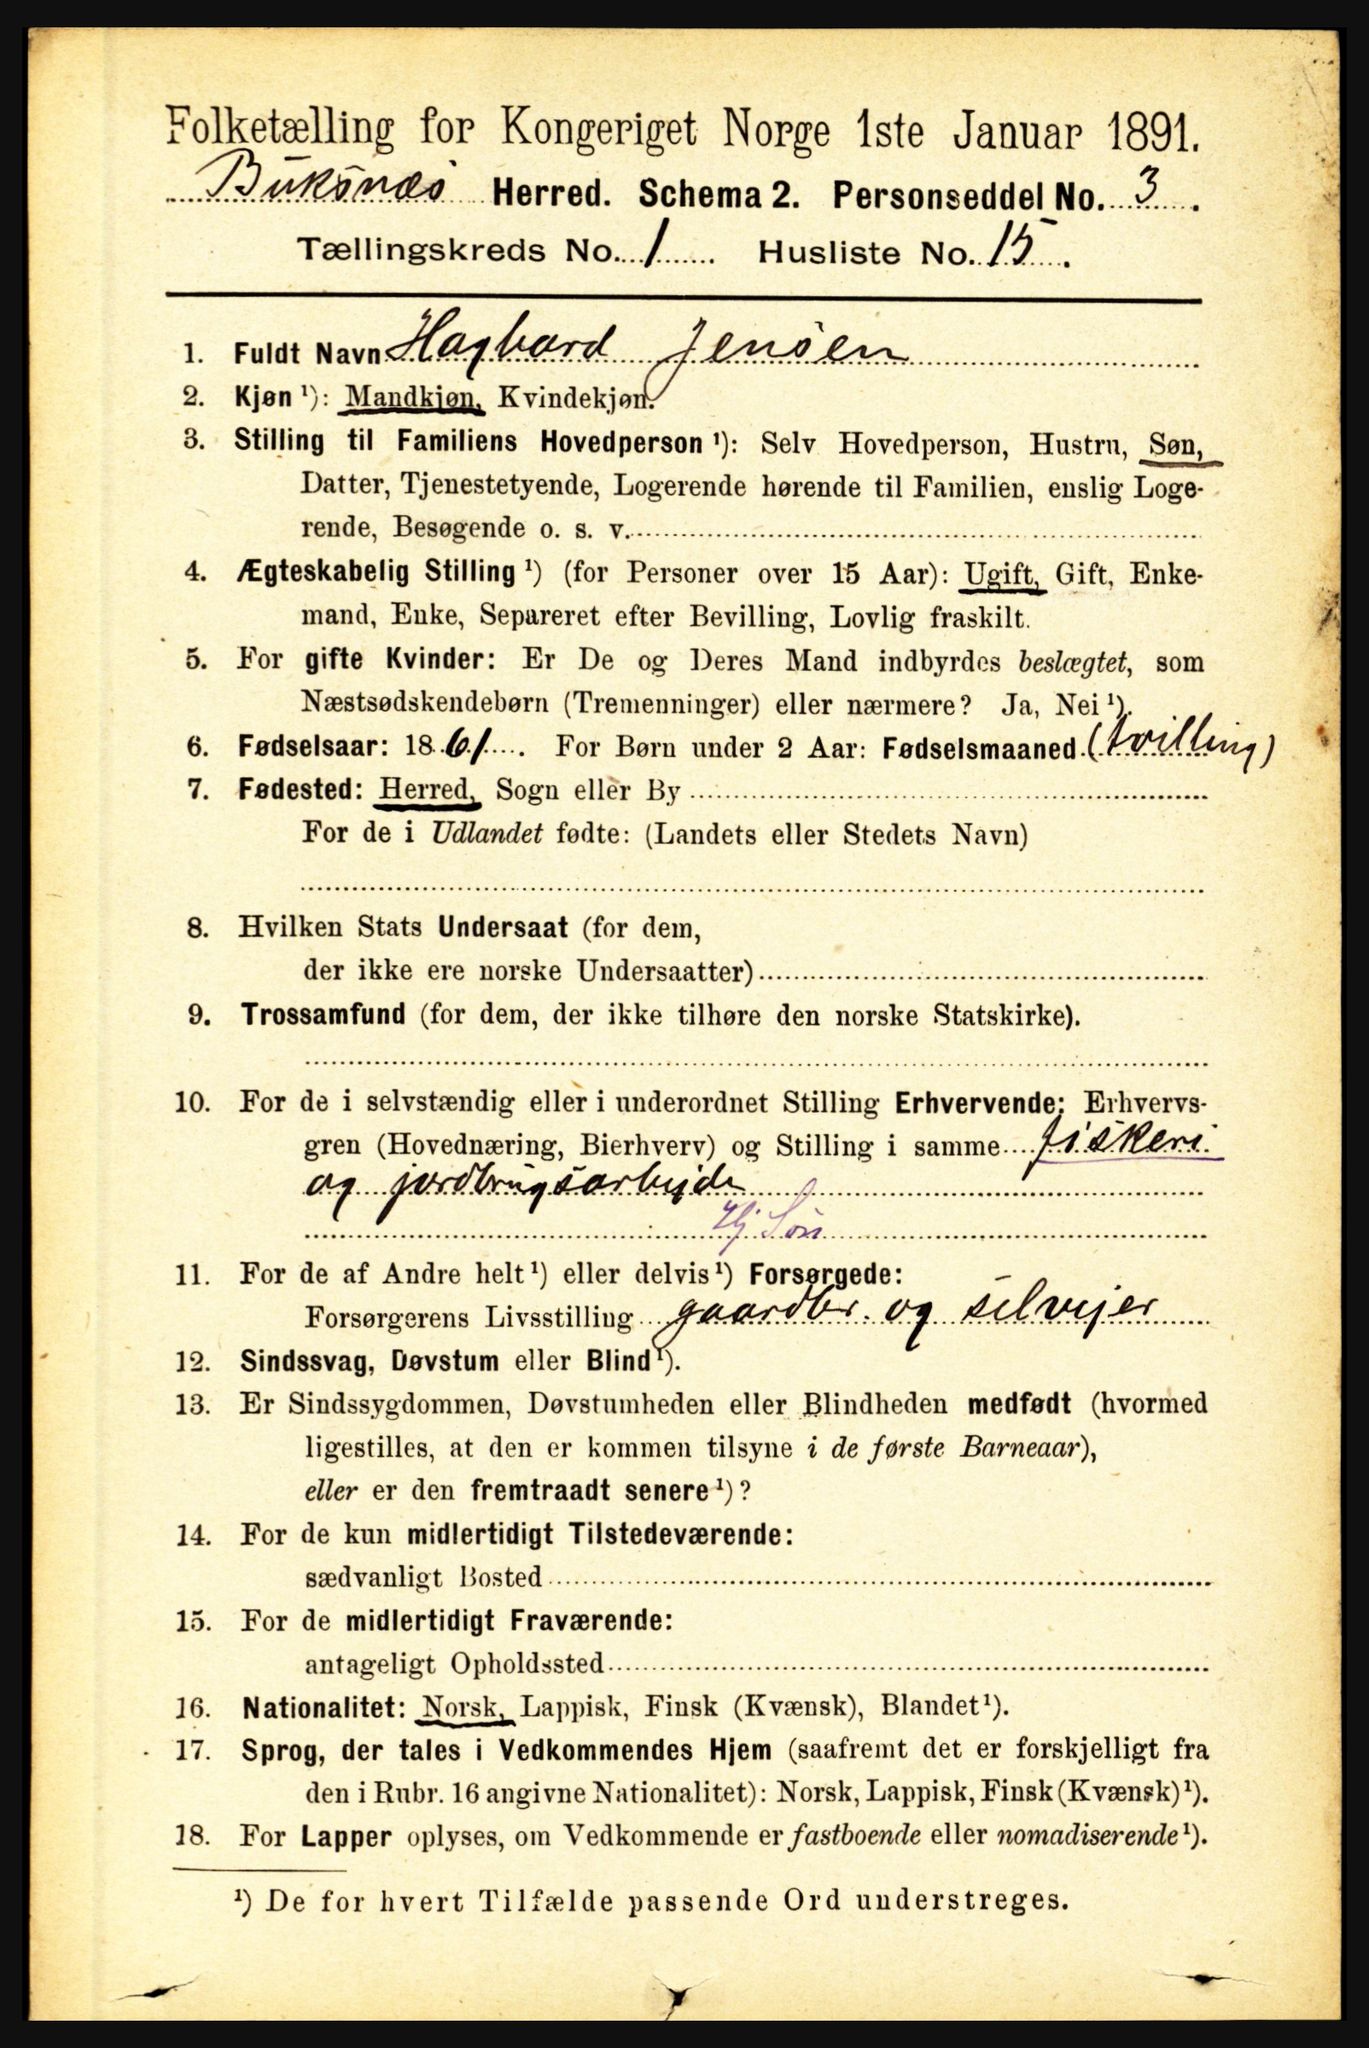 Folketælling for Kongeriget Norge 1ste Januar 1891.
Buksnæs Herred. Schema 2. Personseddel No. 3.
Tællingskreds No. 1 Husliste No. 15.
1. Fuldt Navn Hagbard Jensen
2. Kjøn ¹): Mandkjøn, Kvindekjøn.
3. Stilling til Familiens Hovedperson ¹): Selv Hovedperson, Hustru, Søn,
Datter, Tjenestetyende, Logerende hørende til Familien, enslig Loge-
rende, Besøgende o. s. v.
4. Ægteskabelig Stilling ¹) (for Personer over 15 Aar): Ugift, Gift, Enke-
mand, Enke, Separeret efter Bevilling, Lovlig fraskilt.
5. For gifte Kvinder: Er De og Deres Mand indbyrdes beslægtet, som
Næstsødskendebørn (Tremenninger) eller nærmere? Ja, Nei ¹).
6. Fødselsaar: 1861. For Børn under 2 Aar: Fødselsmaaned (tvilling)
7. Fødested: Herred, Sogn eller By
For de i Udlandet fødte: (Landets eller Stedets Navn)
8. Hvilken Stats Undersaat (for dem,
der ikke ere norske Undersaatter)
9. Trossamfund (for dem, der ikke tilhøre den norske Statskirke).
10. For de i selvstændig eller i underordnet Stilling Erhvervende: Erhvervs-
gren (Hovednæring, Bierhverv) og Stilling i samme fiskeri
og jordbrugsarbejde
Hj Søn
11. For de af Andre helt ¹) eller delvis ¹) Forsørgede:
Forsørgerens Livsstilling gaardbr. og selvejer
12. Sindssvag, Døvstum eller Blind ¹).
13. Er Sindssygdommen, Døvstumheden eller Blindheden medfødt (hvormed
ligestilles, at den er kommen tilsyne i de første Barneaar),
eller er den fremtraadt senere ¹)?
14. For de kun midlertidigt Tilstedeværende:
sædvanligt Bosted
15. For de midlertidigt Fraværende:
antageligt Opholdssted
16. Nationalitet: Norsk, Lappisk, Finsk (Kvænsk), Blandet ¹).
17. Sprog, der tales i Vedkommendes Hjem (saafremt det er forskjelligt fra
den i Rubr. 16 angivne Nationalitet): Norsk, Lappisk, Finsk (Kvænsk) ¹).
18. For Lapper oplyses, om Vedkommende er fastboende eller nomadiserende ¹).
¹) De for hvert Tilfælde passende Ord understreges.